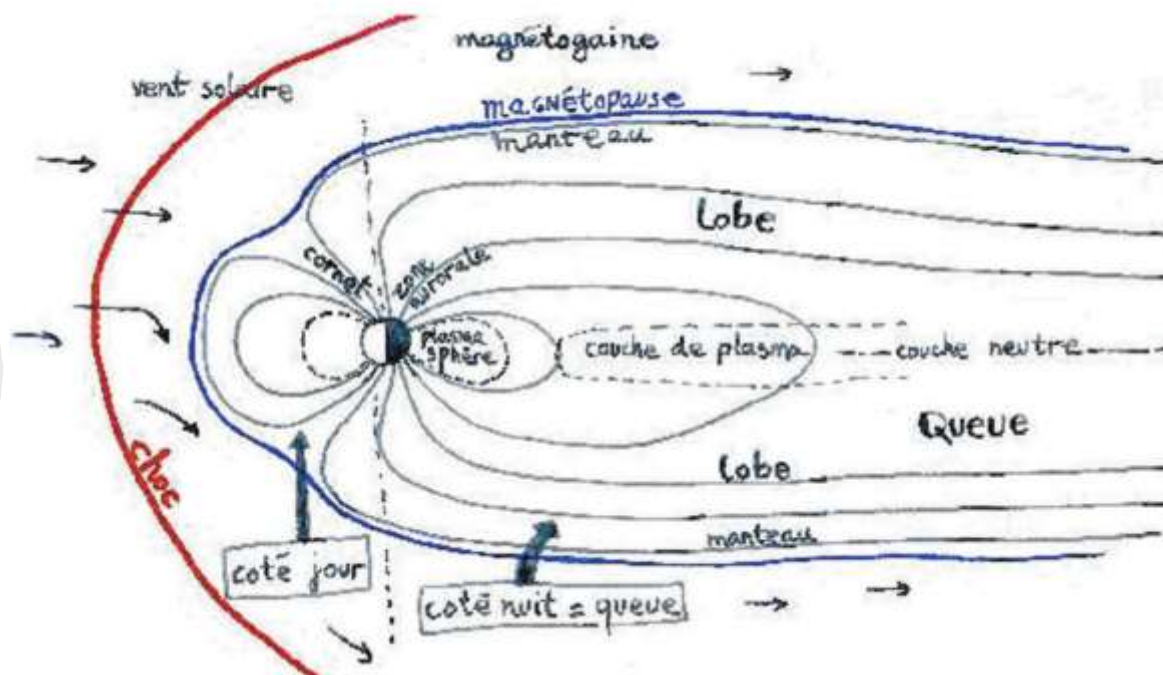 magnétogaine
vent solaire
magnétopause
manteau
lobe
cornet
zone
aurorale
plasma
sphère
couche de plasma
couche neutre
Queue
choc
lobe
manteau
coté jour
coté nuit = queue